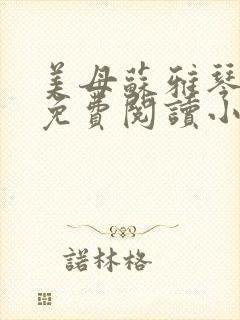 美母蘇雅琴
免費閱讀小
諾林格